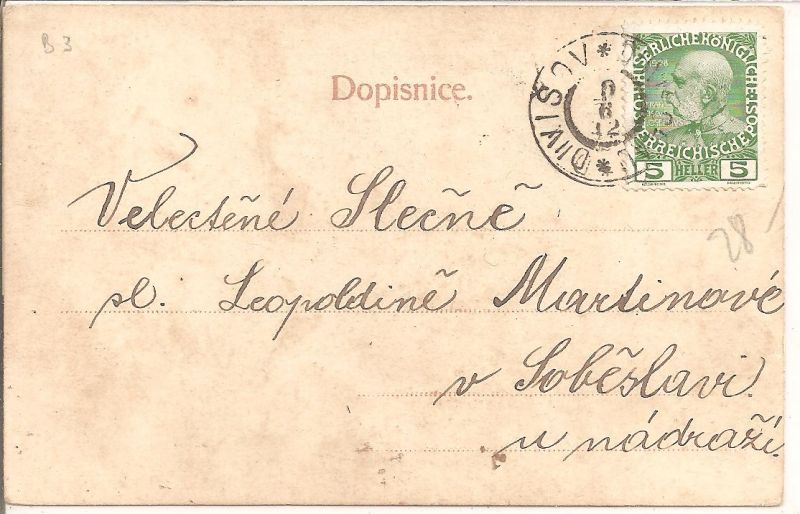 B 3
Dopisnice.
DIVIŠOV
6
12
KAISERLICHE KÖNIGLICHE
ÖSTERREICHISCHE POST
5 HELLER 5
Velectěné Slečně
sl. Leopoldině Martinové
v Soběslavi.
u nádraží.
28